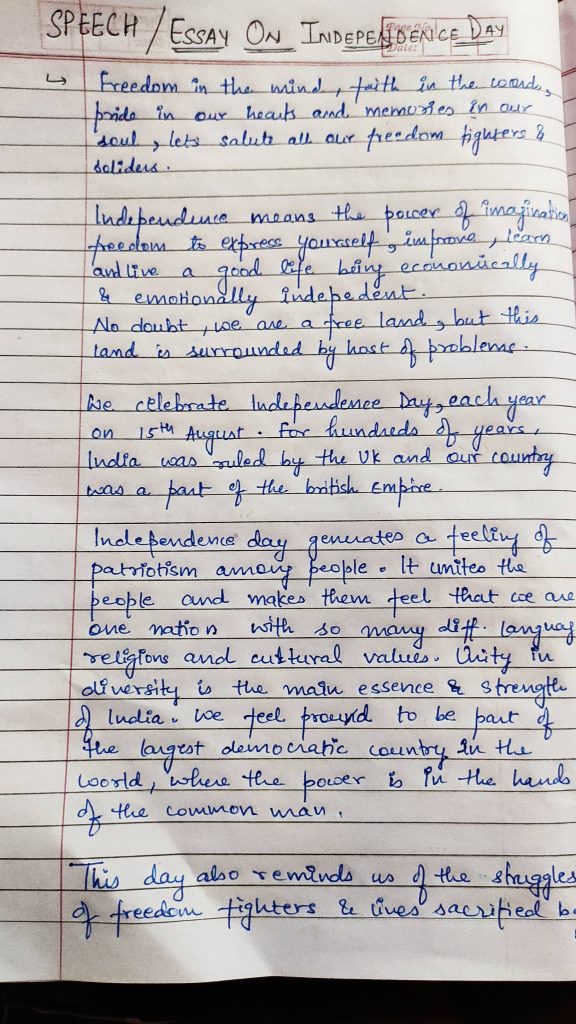 SPEECH / ESSAY ON INDEPENDENCE DAY
Page No.
Date:
↳ Freedom in the mind, faith in the words,
pride in our hearts and memories in our
soul, lets salute all our freedom fighters &
soliders.
Independence means the power of imagination
freedom to express yourself, improve, learn
and live a good life being economically
& emotionally indepedent.
No doubt, we are a free land, but this
land is surrounded by host of problems.
We celebrate Independence Day, each year
on 15th August. For hundreds of years,
India was ruled by the UK and our country
was a part of the british Empire.
Independence day generates a feeling of
patriotism among people. It unites the
people and makes them feel that we are
one nation with so many diff. languag
religions and cultural values. Unity in
diversity is the main essence & strength
of India. We feel proud to be part of
the largest democratic country in the
world, where the power is in the hands
of the common man.
This day also reminds us of the struggles
of freedom fighters & lives sacrificed